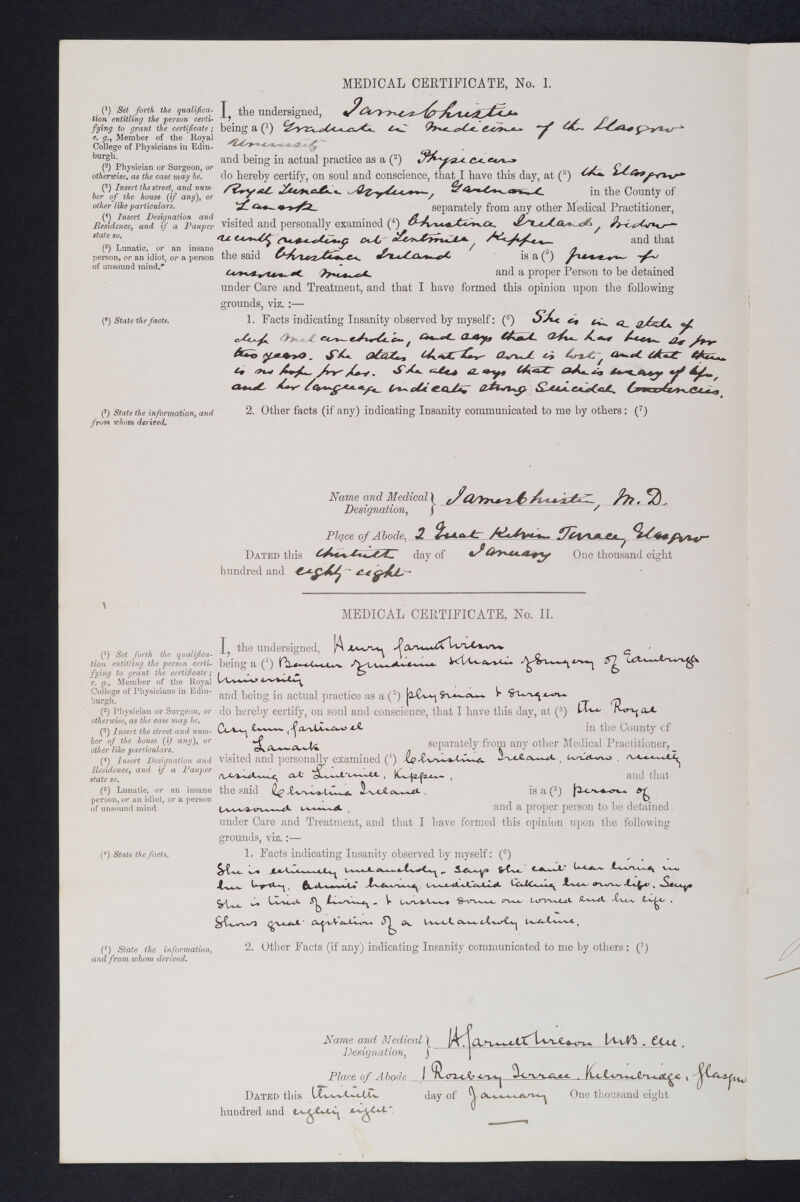 MEDICAL CERTIFICATE, No. I.
(¹) Set forth the qualifica-
tion entitling the person certi-
fying to grant the certificate;
e. g., Member of the Royal
College of Physicians in Edin-
burgh.
(²) Physician or Surgeon, or
otherwise, as the case may be.
(³) Insert the street, and num-
ber of the house (if any), or
other like particulars.
(⁴) Insert Designation and
Residence, and if a Pauper
state so.
(⁵) Lunatic, or an insane
person, or an idiot, or a person
of unsound mind.
I, the undersigned, James Christie
being a (¹) Graduate in Medicine of the Glasgow
University
and being in actual practice as a (²) Physician
do hereby certify, on soul and conscience, that I have this day, at (³) the Glasgow
Royal Lunatic Asylum, Gartnavel in the County of
Lanark separately from any other Medical Practitioner,
visited and personally examined (⁴) Christina Ireland, Widow
recently residing at Lintmill, Kippen and that
the said Christina Ireland is a (⁵) person of
unsound mind and a proper Person to be detained
under Care and Treatment, and that I have formed this opinion upon the following
grounds, viz. :—
(⁶) State the facts.
1. Facts indicating Insanity observed by myself: (⁶) She is in a state of
deep melancholia, and says that she has been so for
two years. She states that her soul is lost, and that there
is no hope for her. She also says that she is weary of life,
and her language indicates strong Suicidal tendencies.
(⁷) State the information, and
from whom derived.
2. Other facts (if any) indicating Insanity communicated to me by others: (⁷)
Name and Medical Designation, James Christie, M.D.
Place of Abode, 2 Great Kelvin Terrace, Glasgow
DATED this thirtieth day of January One thousand eight
hundred and eighty-eight
MEDICAL CERTIFICATE, No. II.
(¹) Set forth the qualifica-
tion entitling the person certi-
fying to grant the certificate;
e. g., Member of the Royal
College of Physicians in Edin-
burgh.
(²) Physician or Surgeon, or
otherwise, as the case may be.
(³) Insert the street and num-
ber of the house (if any), or
other like particulars.
(⁴) Insert Designation and
Residence, and if a Pauper
state so.
(⁵) Lunatic, or an insane
person, or an idiot, or a person
of unsound mind
I, the undersigned, Henry Garnett Wilson
being a (¹) Bachelor of medicine & Master of Surgery of Edinburgh
University
and being in actual practice as a (²) physician & surgeon
do hereby certify, on soul and conscience, that I have this day, at (³) the Royal
Asylum, Gartnavel in the County of
Lanark separately from any other Medical Practitioner,
visited and personally examined (⁴) Christina Ireland, widow, recently
residing at Lintmill, Kippen, and that
the said Christina Ireland. is a (⁵) person of
unsound mind, and a proper person to be detained
under Care and Treatment, and that I have formed this opinion upon the following
grounds, viz. :—
(⁶) State the facts.
1. Facts indicating Insanity observed by myself: (⁶)
She is extremely melancholy. Says she can't bear living in
her body. Admits having meditated taking her own life. Says
she is tired of living - & wishes some one would end her life.
Shows great agitation of a melancholy nature.
(⁷) State the information,
and from whom derived.
2. Other Facts (if any) indicating Insanity communicated to me by others: (⁷)
Name and Medical Designation, H. Garnett Wilson M.B. C.M.
Place of Abode 1 Rosebery Terrace, Kelvinbridge, Glasgow
DATED this Thirtieth day of January One thousand eight
hundred and eighty eight